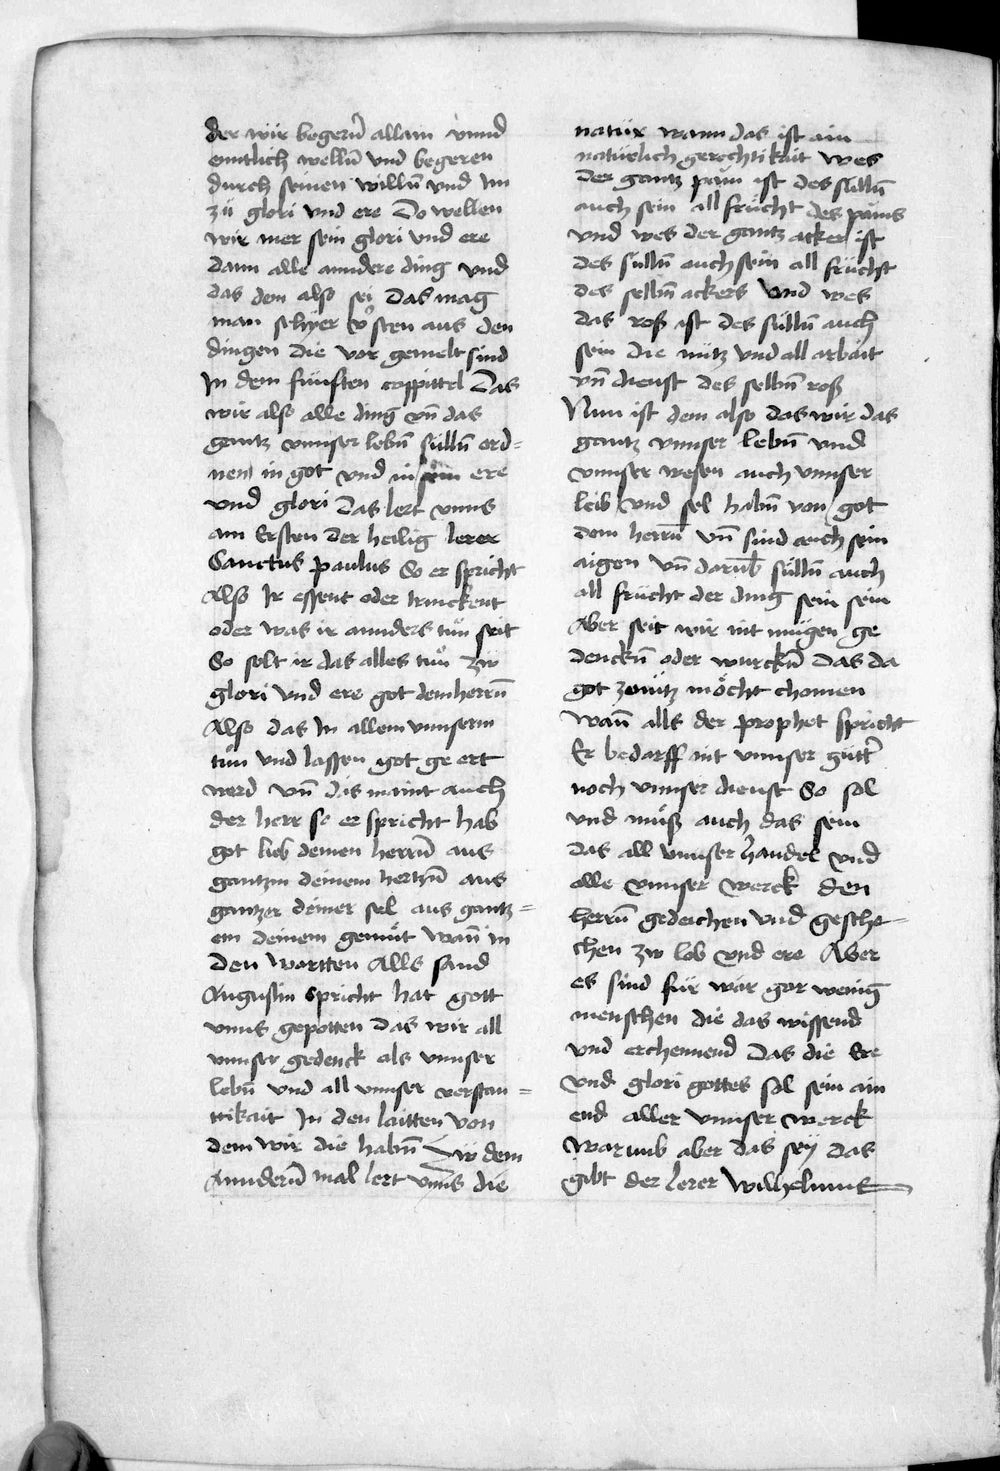 der wir begern̄ allain vnnd
enntlich welln̄ vnd begeren
durch seinen willn̄ vnd Im
zů glori vnd ere Do wellen
wir mer sein glori vnd ere
dann alle anndere ding vnd
das dem also sei Das mag
man schier v̊sten aus den
dingen die vor gemelt sind
In dem fünften cappittel Das
wir also alle ding vn̄ das
gantz vnnser lebn̄ sülln̄ ord=
nen in got vnd in sein ere
vnd glori Das lert vnns
am Ersten der heilig lerer
Sanctus paulus So er spricht
Also Ir essent oder trinckent
oder was ir annders tuͦn seit
So solt ir das alles tuͦn zw
glori vnd ere got dem herrn̄
Also das In allem vnnserm
tuͦn vnd lassen got ge ert
werd vn̄ dis maint auch
der herr so er spricht hab
got lieb deinen herrn̄ aus
gantzm deinem hertzn̄ aus
gantzer deiner sel aus gantz=
em deinem gemuͤt wan̄ in
den wortten Alls sand
Augustin spricht hat gott
vnns gepotten das wir all
vnnser gedenck als vnnser
lebn̄ vnd all vnnser verstan=
ttikait In den laitten von
dem wir die habn̄ Zw dem
Anndern̄ mal lert vnns die
natür wann das ist ain
natürlich gerechtikait wes
der gantz pam̄ ist des sülln̄
auch sein all frücht des pams
vnd wes der gantz acker ist
des sülln̄ auch sein all frücht
des selbn̄ ackers vnd wes
das roß ist des sülln̄ auch
sein die nütz vnd all arbait
vn̄ dienst des selbn̄ roß
Nun ist dem also das wir das
gantz vnnser lebn̄ vnd
vnnser wesen auch vnnser
leib vnd sel habn̄ von got
dem herrn̄ vn̄ sind auch sein
aigen vn̄ darub̄ sülln̄ auch
all frücht der ding sein sein
Aber seit wir nit mügen ge
denckn̄ oder wurckn̄ das da
got zenütz möcht chomen
wan̄ alls der prophet spricht
Er bedarff nit vnnser gütt̄
noch vnnser dienst So sol
vnd muͤß auch das sein
das all vnnser handel vnd
alle vnnser werck den
herrn̄ gedeichen vnd gesche=
chen zw lob vnd ere Aber
es sind für war gar wenig
menschen die das wissend
vnd erchennend Das die Ere
vnd glori gottes sol sein ain
end aller vnnser werck
warumb aber das sey das
gibt der lerer wilhelmus